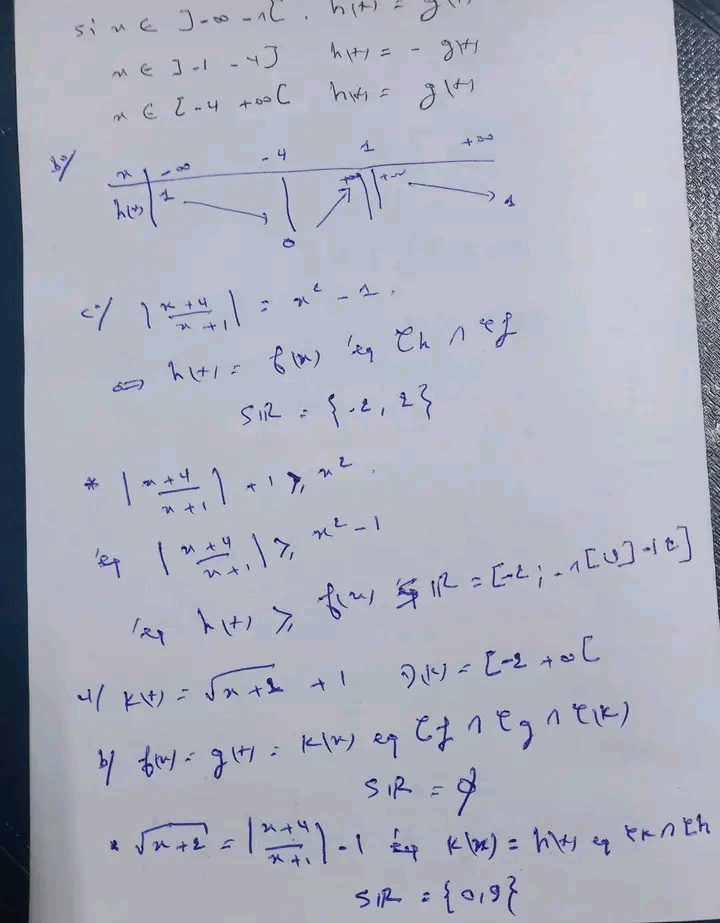 si x ∈ ]-∞ -1[ . h(x) = g(x)
x ∈ ]-1 -4] h(x) = - g(x)
x ∈ [-4 +∞[ h(x) = g(x)
b°/
x -∞ -4 1 +∞
h(x) 1 0 +∞ +∞ 1
c°/ |x+4/x+1| = x² - 1.
⇔ h(x) = f(x) éq Ch ∩ Cf
SIR = {-2, 2}
* |x+4/x+1| + 1 ≥ x².
éq |x+4/x+1| ≥ x² - 1
éq h(x) ≥ f(x) SIR = [-2; -1[ U ]-1 2]
4/ K(x) = √x+2 + 1 D(K) = [-2 +∞[
b/ f(x) = g(x) = K(x) eq Cf ∩ Cg ∩ C(K)
SIR = ∅
* √x+2 = |x+4/x+1| - 1 éq K(x) = h(x) eq CK ∩ Ch
SIR = {0,9}